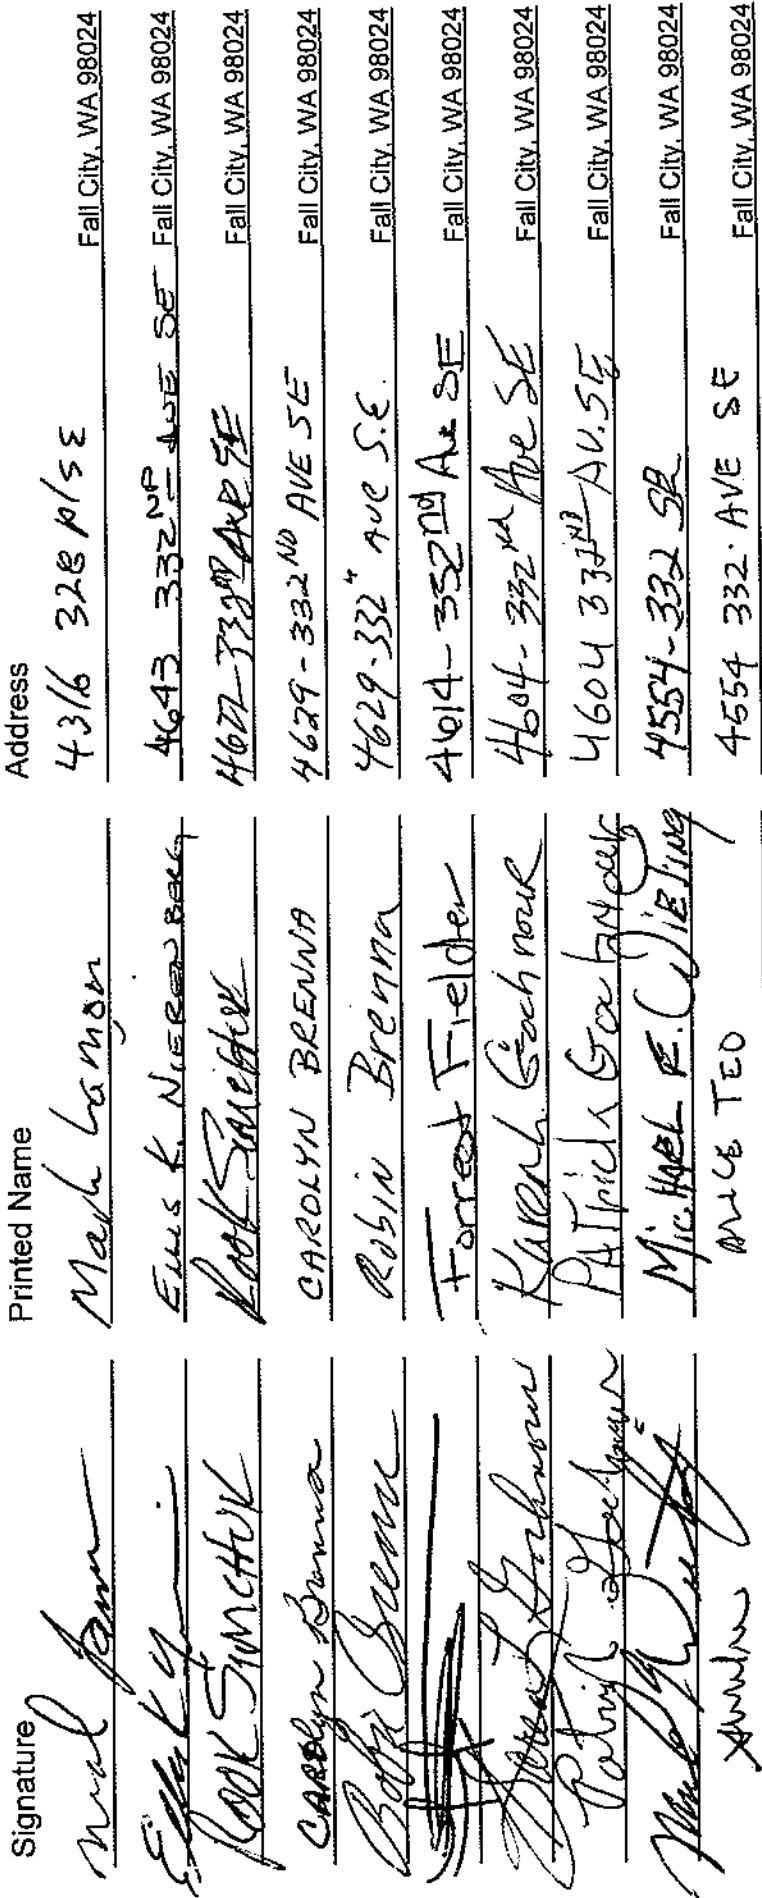 Signature Printed Name Address
Mark Lamon 4316 328 pl SE Fall City, WA 98024
ELLIS K. NIERENBERG 4643 332ND AVE SE Fall City, WA 98024
ROOK SIMCHUK ROOK SIMCHUK 4622-332ND AVE SE Fall City, WA 98024
CAROLYN Brenna CAROLYN BRENNA 4629-332ND AVE SE Fall City, WA 98024
Robin Brenna 4629-332" AVE S.E. Fall City, WA 98024
Forrest Fielder 4614-332nd Ave SE Fall City, WA 98024
Karen L. Gochnour 4604-332nd Ave SE Fall City, WA 98024
Patrick Gochnour 4604 332ND AV. SE Fall City, WA 98024
MICHAEL E. WIETING 4554-332 SE Fall City, WA 98024
TEO 4554 332. AVE SE Fall City, WA 98024